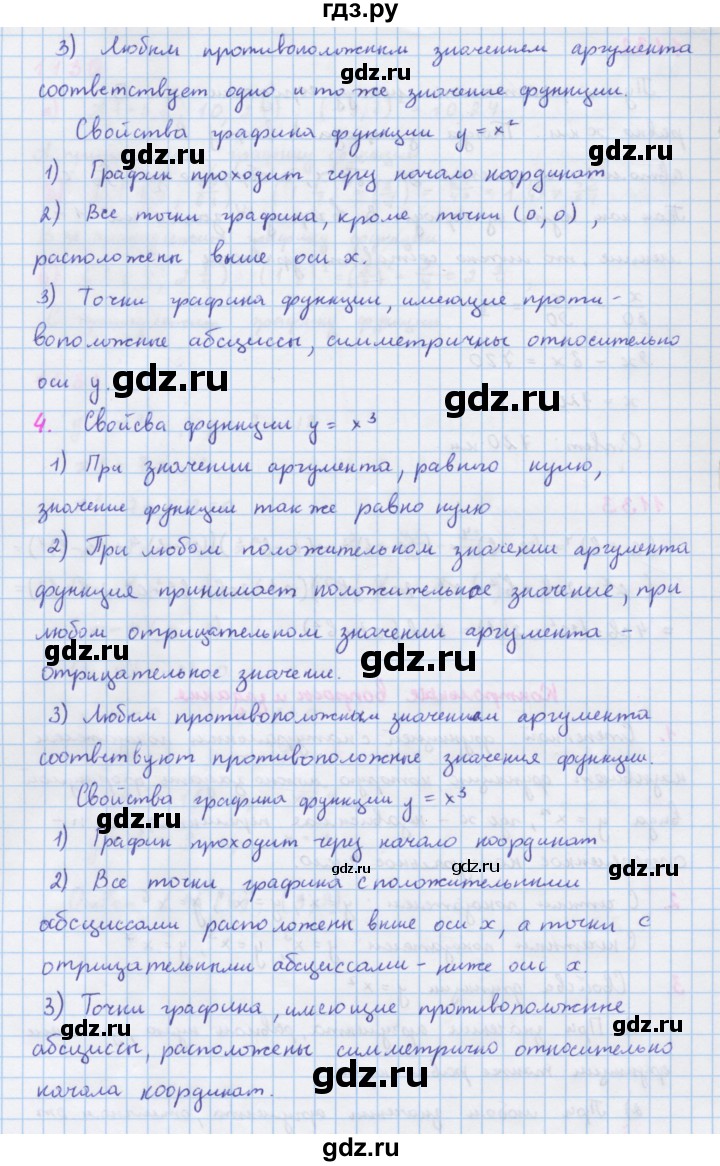 гдз.ру
3) Любым противоположным значением аргумента
соответствует одно и то же значение функции.
Свойства графика функции y = x²
gdz.ru gdz.ru
1) График проходит через начало координат
2) Все точки графика, кроме точки (0; 0),
расположены выше оси x.
gdz.ru
3) Точки графика функции, имеющие проти-
воположные абсциссы, симметричны относительно
оси y.
gdz.ru gdz.ru
4. Свойсва функции y = x³
1) При значении аргумента, равного нулю,
gdz.ru
значение функции также равно нулю
2) При любом положительном значении аргумента
gdz.ru gdz.ru
функция принимает положительное значение, при
любом отрицательном значении аргумента -
gdz.ru
отрицательное значение.
3) Любым противоположным значениям аргумента
gdz.ru
соотвествуют противоположные значения функции.
Свойства графика функции y = x³
gdz.ru
1) График проходит через начало координат
gdz.ru gdz.ru
2) Все точки графика с положительными
абсциссами расположены выше оси x, а точки с
отрицательными абсциссами - ниже оис x.
3) Точки графика, имеющие противоположные
gdz.ru gdz.ru
абсциссы, расположены симметрично относительно
gdz.ru
начала координат.
gdz.ru